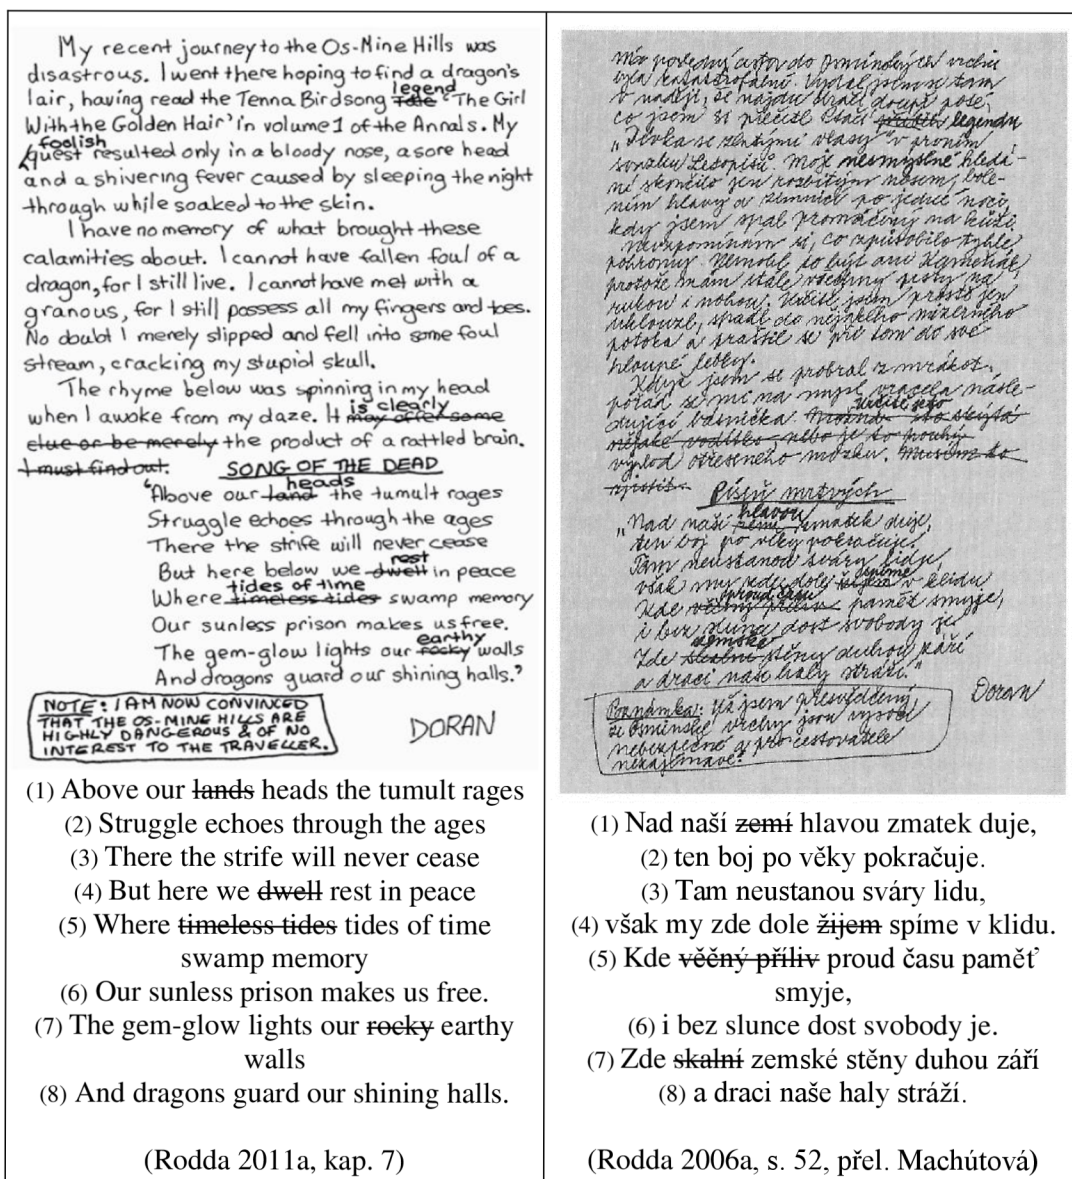 My recent journey to the Os-Mine Hills was
disastrous. I went there hoping to find a dragon's
lair, having read the Tenna Birdsong Tale legend 'The Girl
With the Golden Hair' in volume 1 of the Annals. My
foolish
quest resulted only in a bloody nose, a sore head
and a shivering fever caused by sleeping the night
through while soaked to the skin.
I have no memory of what brought these
calamities about. I cannot have fallen foul of a
dragon, for I still live. I cannot have met with a
granous, for I still possess all my fingers and toes.
No doubt I merely slipped and fell into some foul
stream, cracking my stupid skull.
The rhyme below was spinning in my head
is clearly
when I awoke from my daze. It may offer some
clue or be merely the product of a rattled brain.
I must find out.
SONG OF THE DEAD
heads
'Above our land the tumult rages
Struggle echoes through the ages
There the strife will never cease
rest
But here below we dwell in peace
tides of time
Where timeless tides swamp memory
Our sunless prison makes us free.
earthy
The gem-glow lights our rocky walls
And dragons guard our shining halls.'
NOTE: I AM NOW CONVINCED
THAT THE OS-MINE HILLS ARE
HIGHLY DANGEROUS & OF NO
INTEREST TO THE TRAVELLER.
DORAN
(1) Above our lands heads the tumult rages
(2) Struggle echoes through the ages
(3) There the strife will never cease
(4) But here we dwell rest in peace
(5) Where timeless tides tides of time
swamp memory
(6) Our sunless prison makes us free.
(7) The gem-glow lights our rocky earthy
walls
(8) And dragons guard our shining halls.
(Rodda 2011a, kap. 7)
do Osminských vrchů
byla katastrofální. Vydal jsem se tam
v naději, že najdu dračí doupě poté,
co jsem si přečetl Ptačí příběh legendu
„Dívka se zlatými vlasy“ v prvním
svazku Letopisů. Moje nesmyslné hledá-
ní skončilo jen rozbitým nosem, bole-
ním hlavy a zimnicí po jedné noci,
kdy jsem spal promáčený na kůži.
Nevzpomínám si, co způsobilo tyhle
pohromy. Nemohl to být ani
protože mám stále všechny prsty na
rukou i nohou. Určitě jsem prostě jen
uklouzl, spadl do nějakého mizerného
potoka a praštil se při tom do své
hloupé lebky.
Když jsem se probral z mrákot,
pořád se mi na mysl vracela násle-
Určitě je to
dující básnička. Možná skýtá
nějaké vodítko nebo je to pouhý
výplod otřeseného mozku. Musím to
zjistit.
Píseň mrtvých
hlavou
„Nad naší zemí zmatek duje,
ten boj po věky pokračuje.
Tam neustanou sváry lidu,
spíme
však my zde dole žijem v klidu
proud času
Kde věčný příliv paměť smyje,
i bez slunce dost svobody je
zemské
Zde skalní stěny duhou září
a draci naše haly stráží.“
Poznámka: Už jsem přesvědčený,
že Osminské vrchy jsou vysoce
nebezpečné a pro cestovatele
nezajímavé.
Doran
(1) Nad naší zemí hlavou zmatek duje,
(2) ten boj po věky pokračuje.
(3) Tam neustanou sváry lidu,
(4) však my zde dole žijem spíme v klidu.
(5) Kde věčný příliv proud času paměť
smyje,
(6) i bez slunce dost svobody je.
(7) Zde skalní zemské stěny duhou září
(8) a draci naše haly stráží.
(Rodda 2006a, s. 52, přel. Machútová)